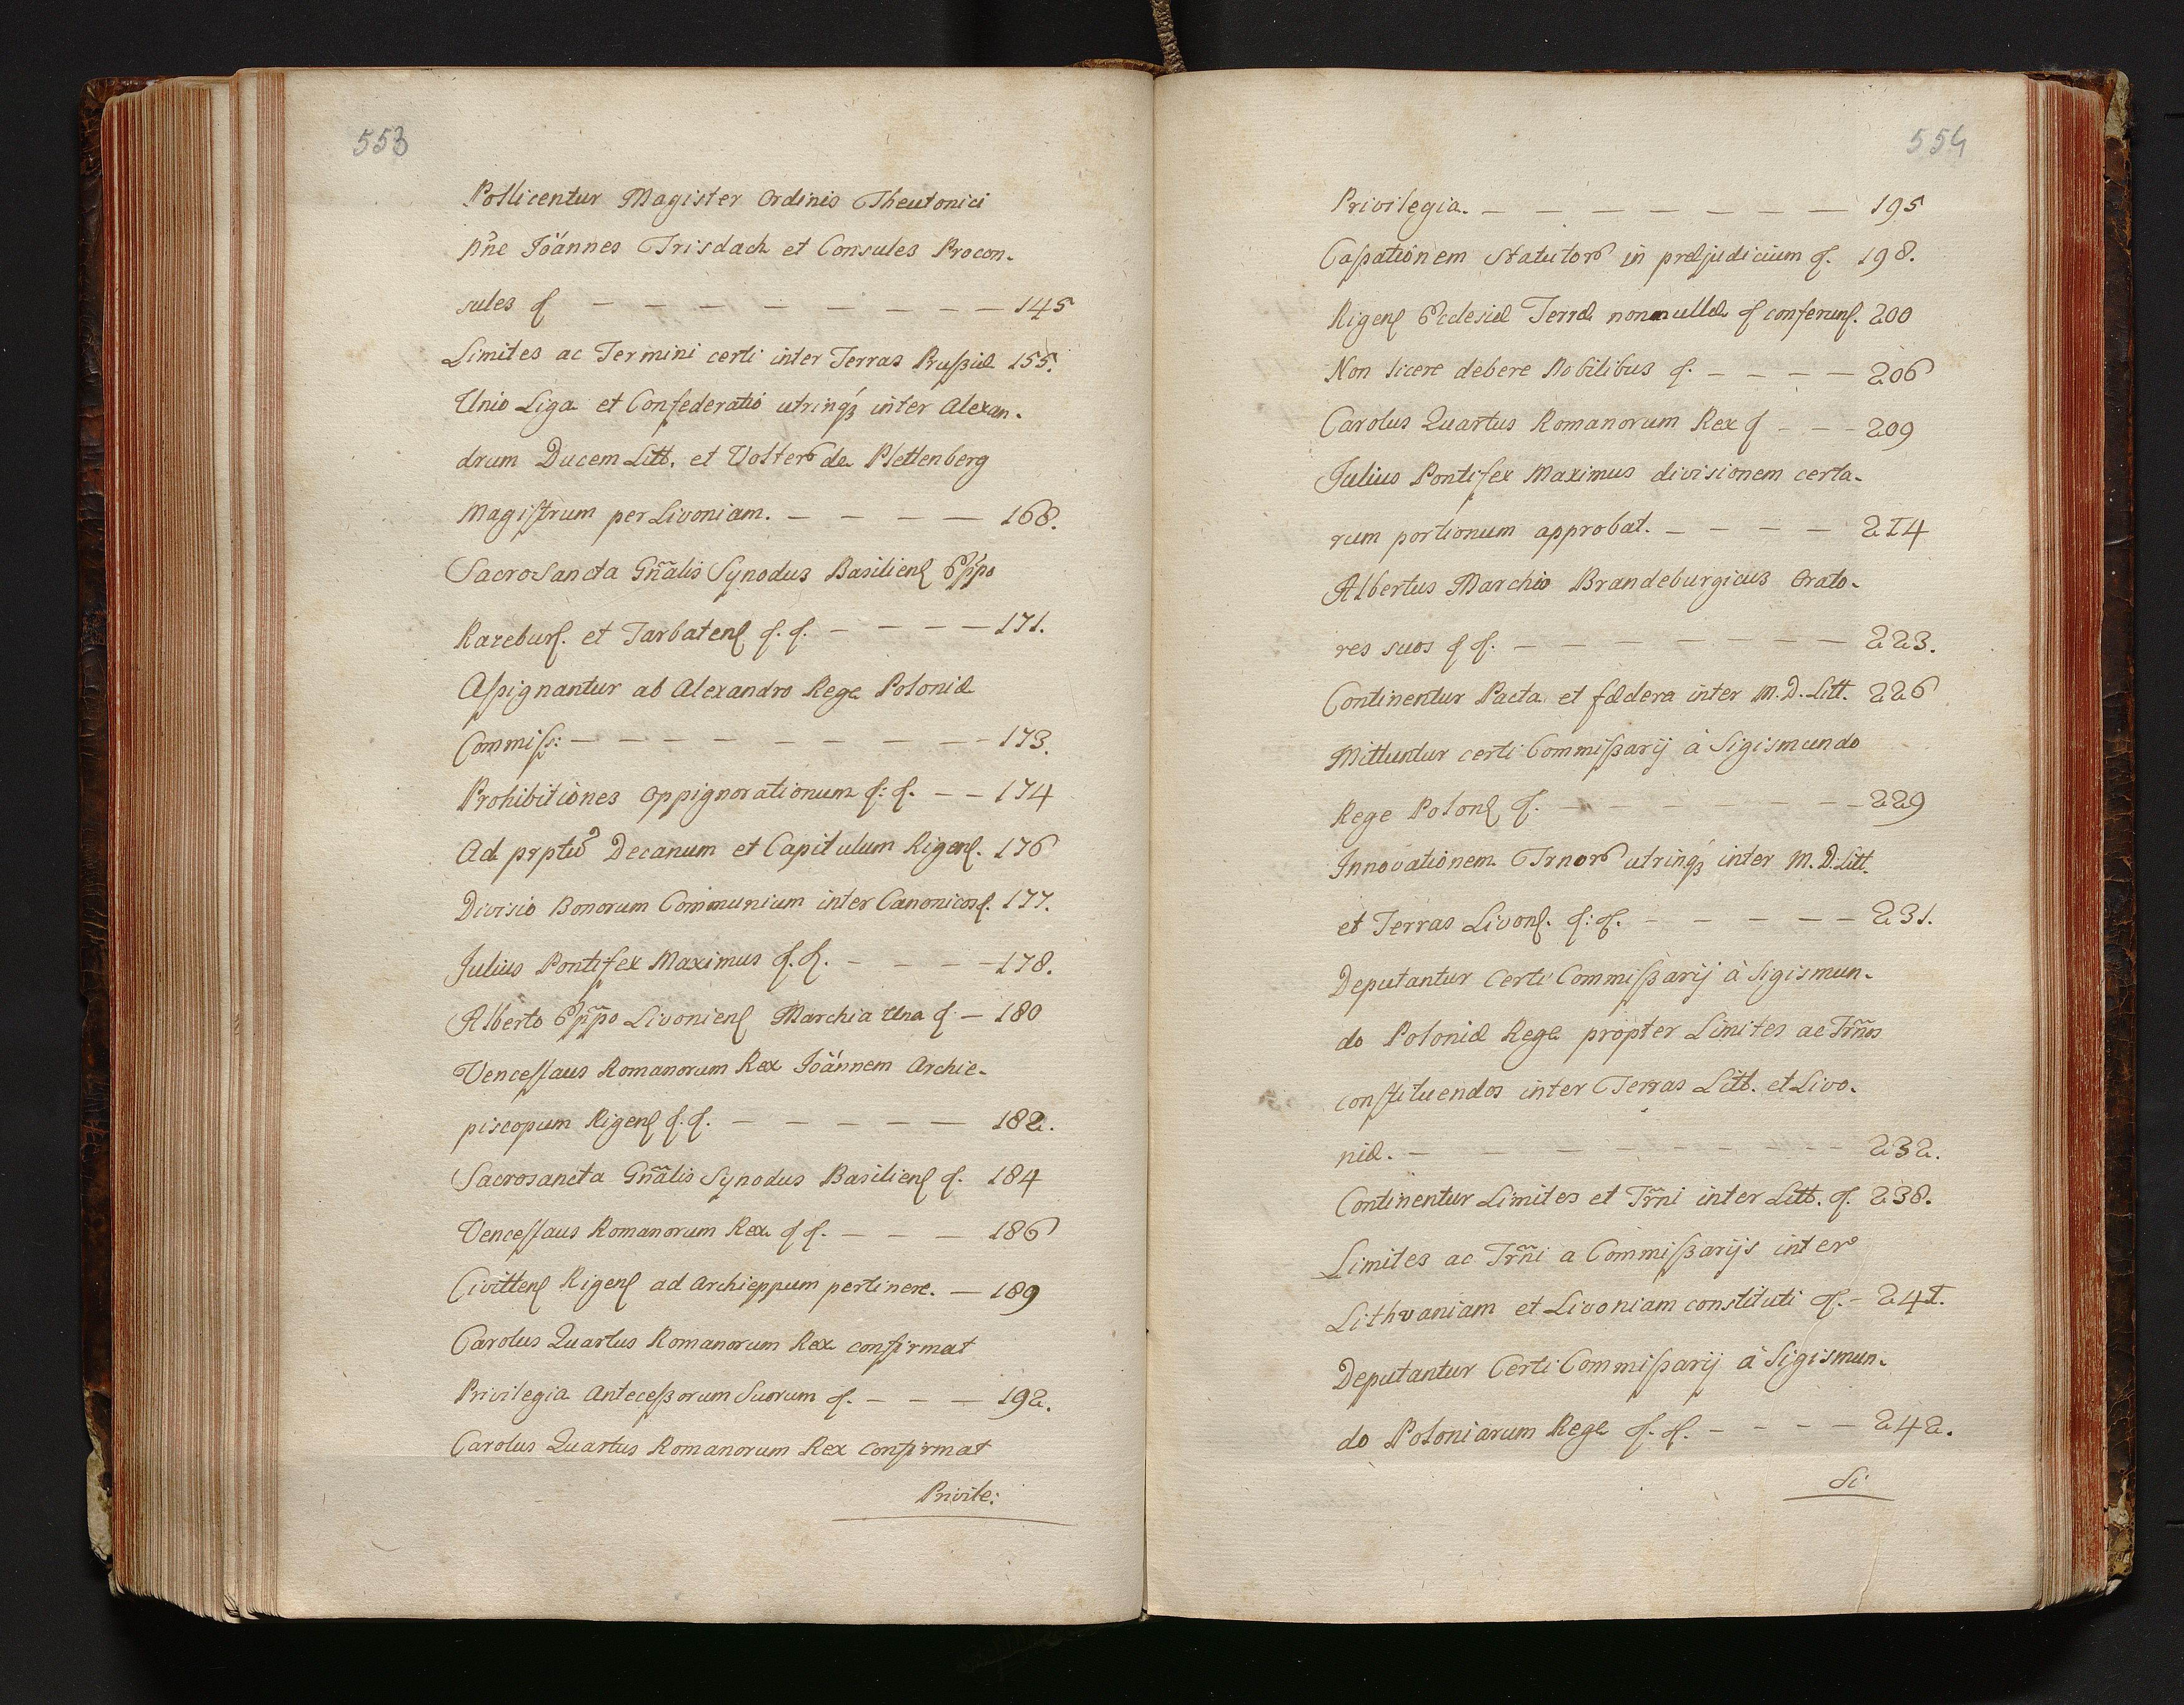 553
Pollicentur Magister Ordinis Theutonici
pñe Joánnes Trisdach et Consules Procon-
sules &c — — — — — — — — 145
Limites ac Termini certi inter Terras Prussiæ 155.
Unio Liga et Confederatio utrinqȝ inter Alexan-
drum Ducem Litt. et Volter de Plettenberg
Magistrum per Livoniam. — — — — 168.
Sacrosancta Gñalis Synodus Basilien Eppo
Razebur. et Tarbaten &c. &c. — — — — 171.
Assignantur ab Alexandro Rege Poloniæ
Commiss: — — — — — — — — 173.
Prohibitiones oppignorationum &c: &c. — — 174
Ad Decanum et Capitulum Rigen. 176
Divisio Bonorum Communium inter Canonicos &c. 177.
Julius Pontifex Maximus &c. &c. — — — — 178.
Alberto Eppo Livonien Marchia Una &c — 180
Venceslaus Romanorum Rex Joánnem Archie-
piscopum Rigen &c. &c. — — — — — 182.
Sacrosancta Gñalis Synodus Basilien &c. 184
Venceslaus Romanorum Rex &c &c. — — — 186
Civitten Rigen ad Archieppum pertinere. — 189
Carolus Quartus Romanorum Rex confirmat
Privilegia Antecessorum Suorum &c. — — — 192.
Carolus Quartus Romanorum Rex Confirmat
Privile:
554
Privilegia. — — — — — — — 195
Cassationem Statutor in præjudicium &c. 198.
Rigen Ecclesiæ Terræ nonnullæ &c conferun. 200
Non licere debere Nobilibus &c. — — — — 206
Carolus Quartus Romanorum Rex &c — — — 209
Julius Pontifex Maximus divisionem certa-
rum portionum approbat. — — — — 214
Albertus Marchio Brandeburgicus Orato-
res suos &c &c. — — — — — — — 223.
Continentur Pacta et fædera inter M. D. Litt. 226
Mittuntur certi Commissarij à Sigismundo
Rege Polon &c. — — — — — — — 229
Innovationem Trnor utrinqȝ inter M. D. Litt.
et Terras Livon. &c: &c. — — — — — 231.
Deputantur Certi Commissarij à Sigismun-
do Poloniæ Rege propter Limites ac Trños
constituendos inter Terras Litt. et Livo-
niæ. — — — — — — — — — 232.
Continentur Limites et Trñi inter Litt. &c. 238.
Limites ac Trñi a Commissarijs inter
Lithvaniam et Livoniam constituti &c. — 241.
Deputantur Certi Commissarij à Sigismun-
do Poloniarum Rege &c. &c. — — — — 242.
Si